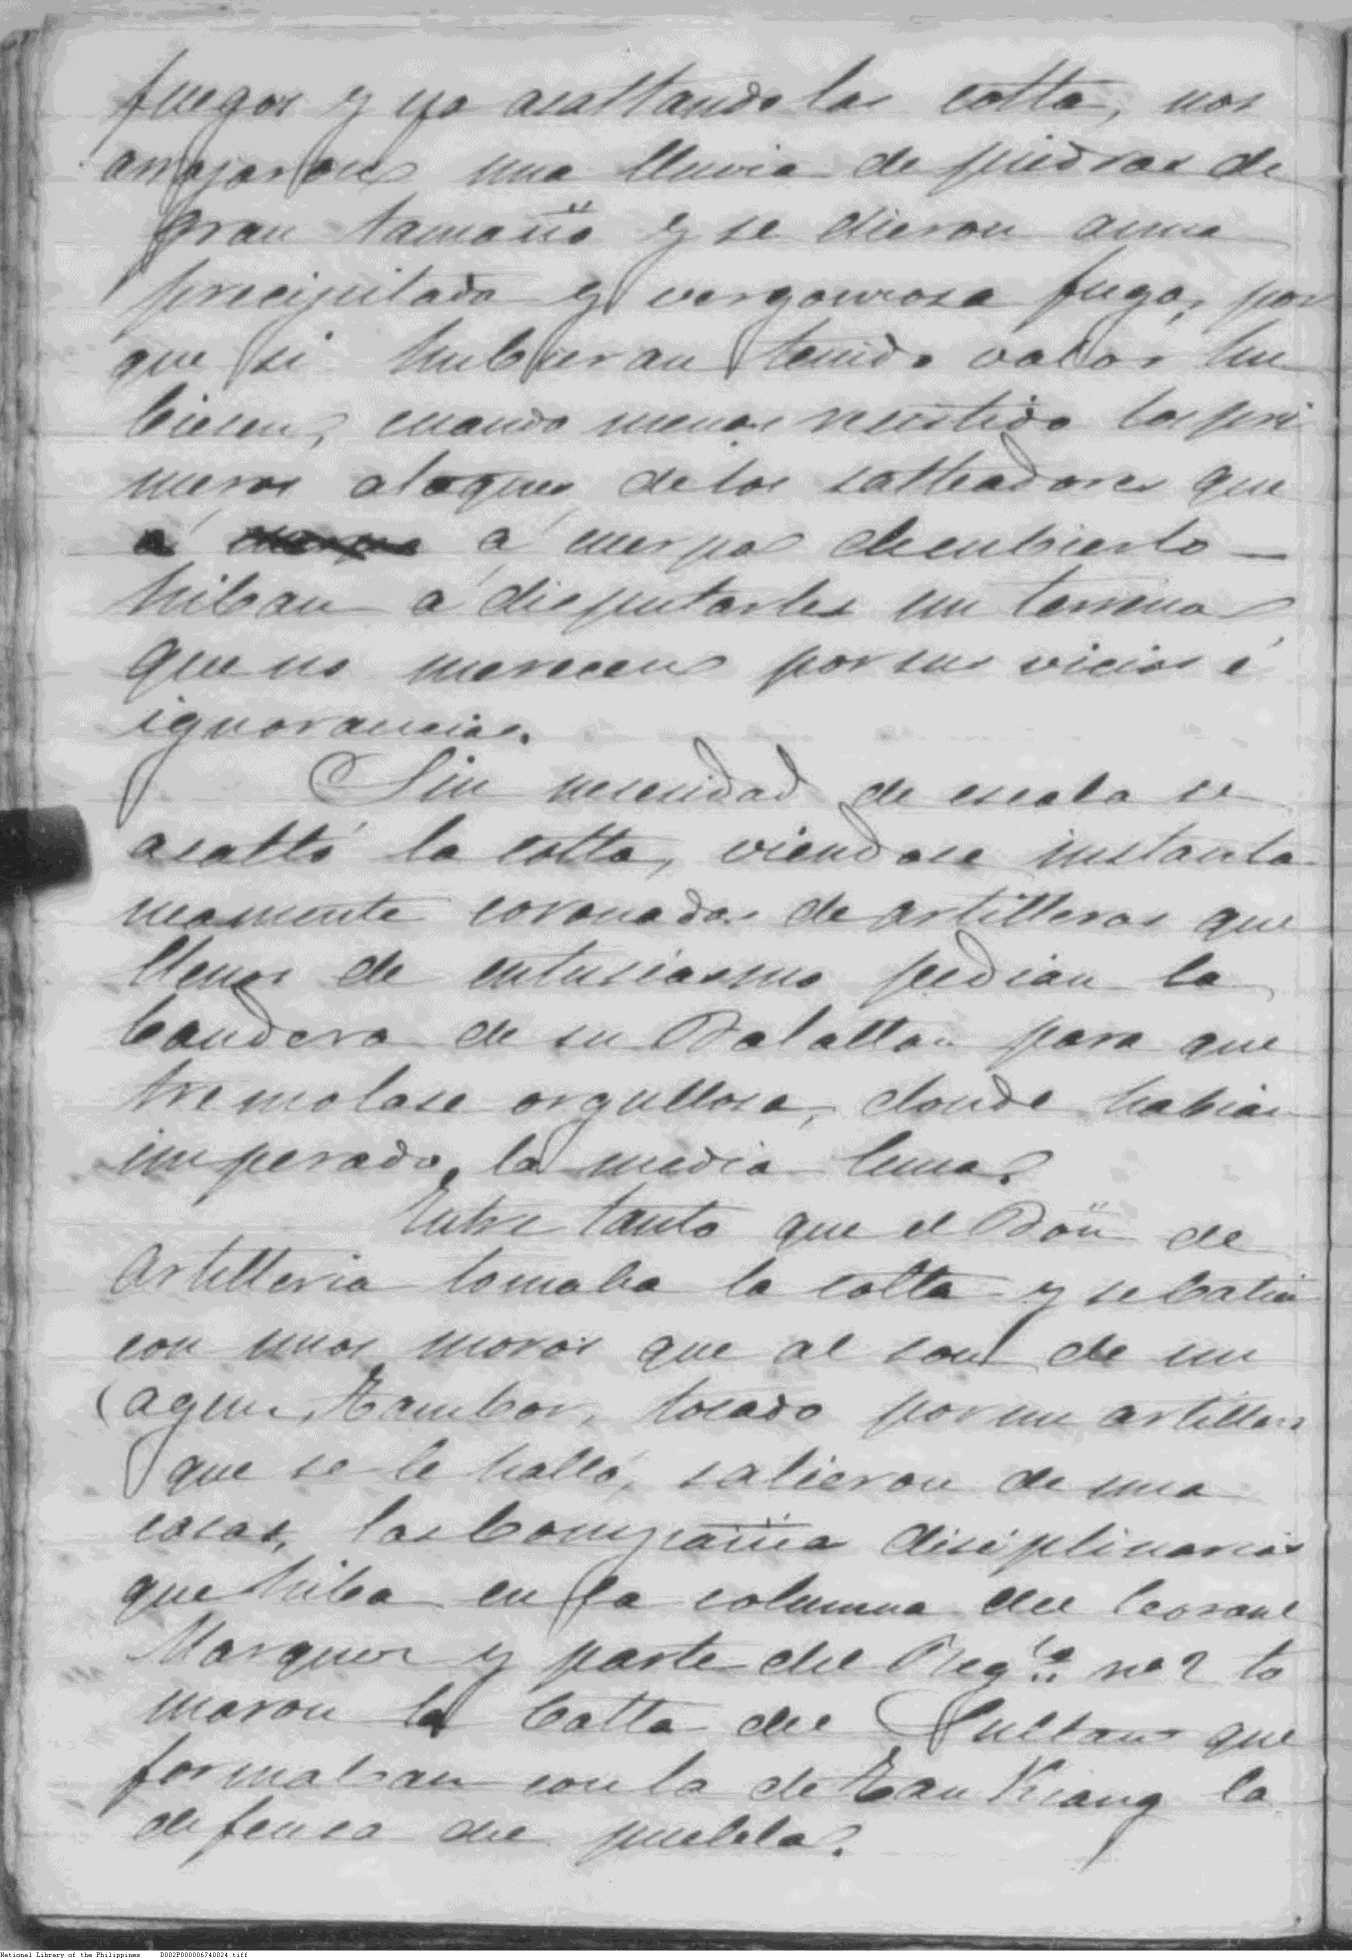 fuegos y ya asaltando las cotta, nos
arrojaron una lluvia de piedras de
gran tamaño y se dieron a una
precipitada y vergonrosa fuga, por
que si hubieran tenido valor hu
biesen, cuando menos resistido los pri
meros ataques de los salteadores que
á cuerpo descubierto
hiban á disputarles un terreno
que no merecen por sus vicios é
ignorancias.
Sin necesidad de escala se
asaltó la cotta, viendose instanta
neamente coronadas de artilleros que
llenos de entusiasmo pedian la
bandera de su Batallon para que
tremolase orgullosa, donde habian
imperado la media luna.
Entre tanto que el Bon de
Artilleria tomaba la cotta y se batia
con unos moros que al son de un
agun, tambor, tocado por un artillero
que se le halló, salieron de una
casas, las Compañia disciplinarias
que hiba en la columna del Coronel
Marquez y parte del Regto no 2 to
maron la Cotta del Sultan que
formaban con la de Tau Kiang la
defensa del pueblo.
National Library of the Philippines D002P000006740024.tiff